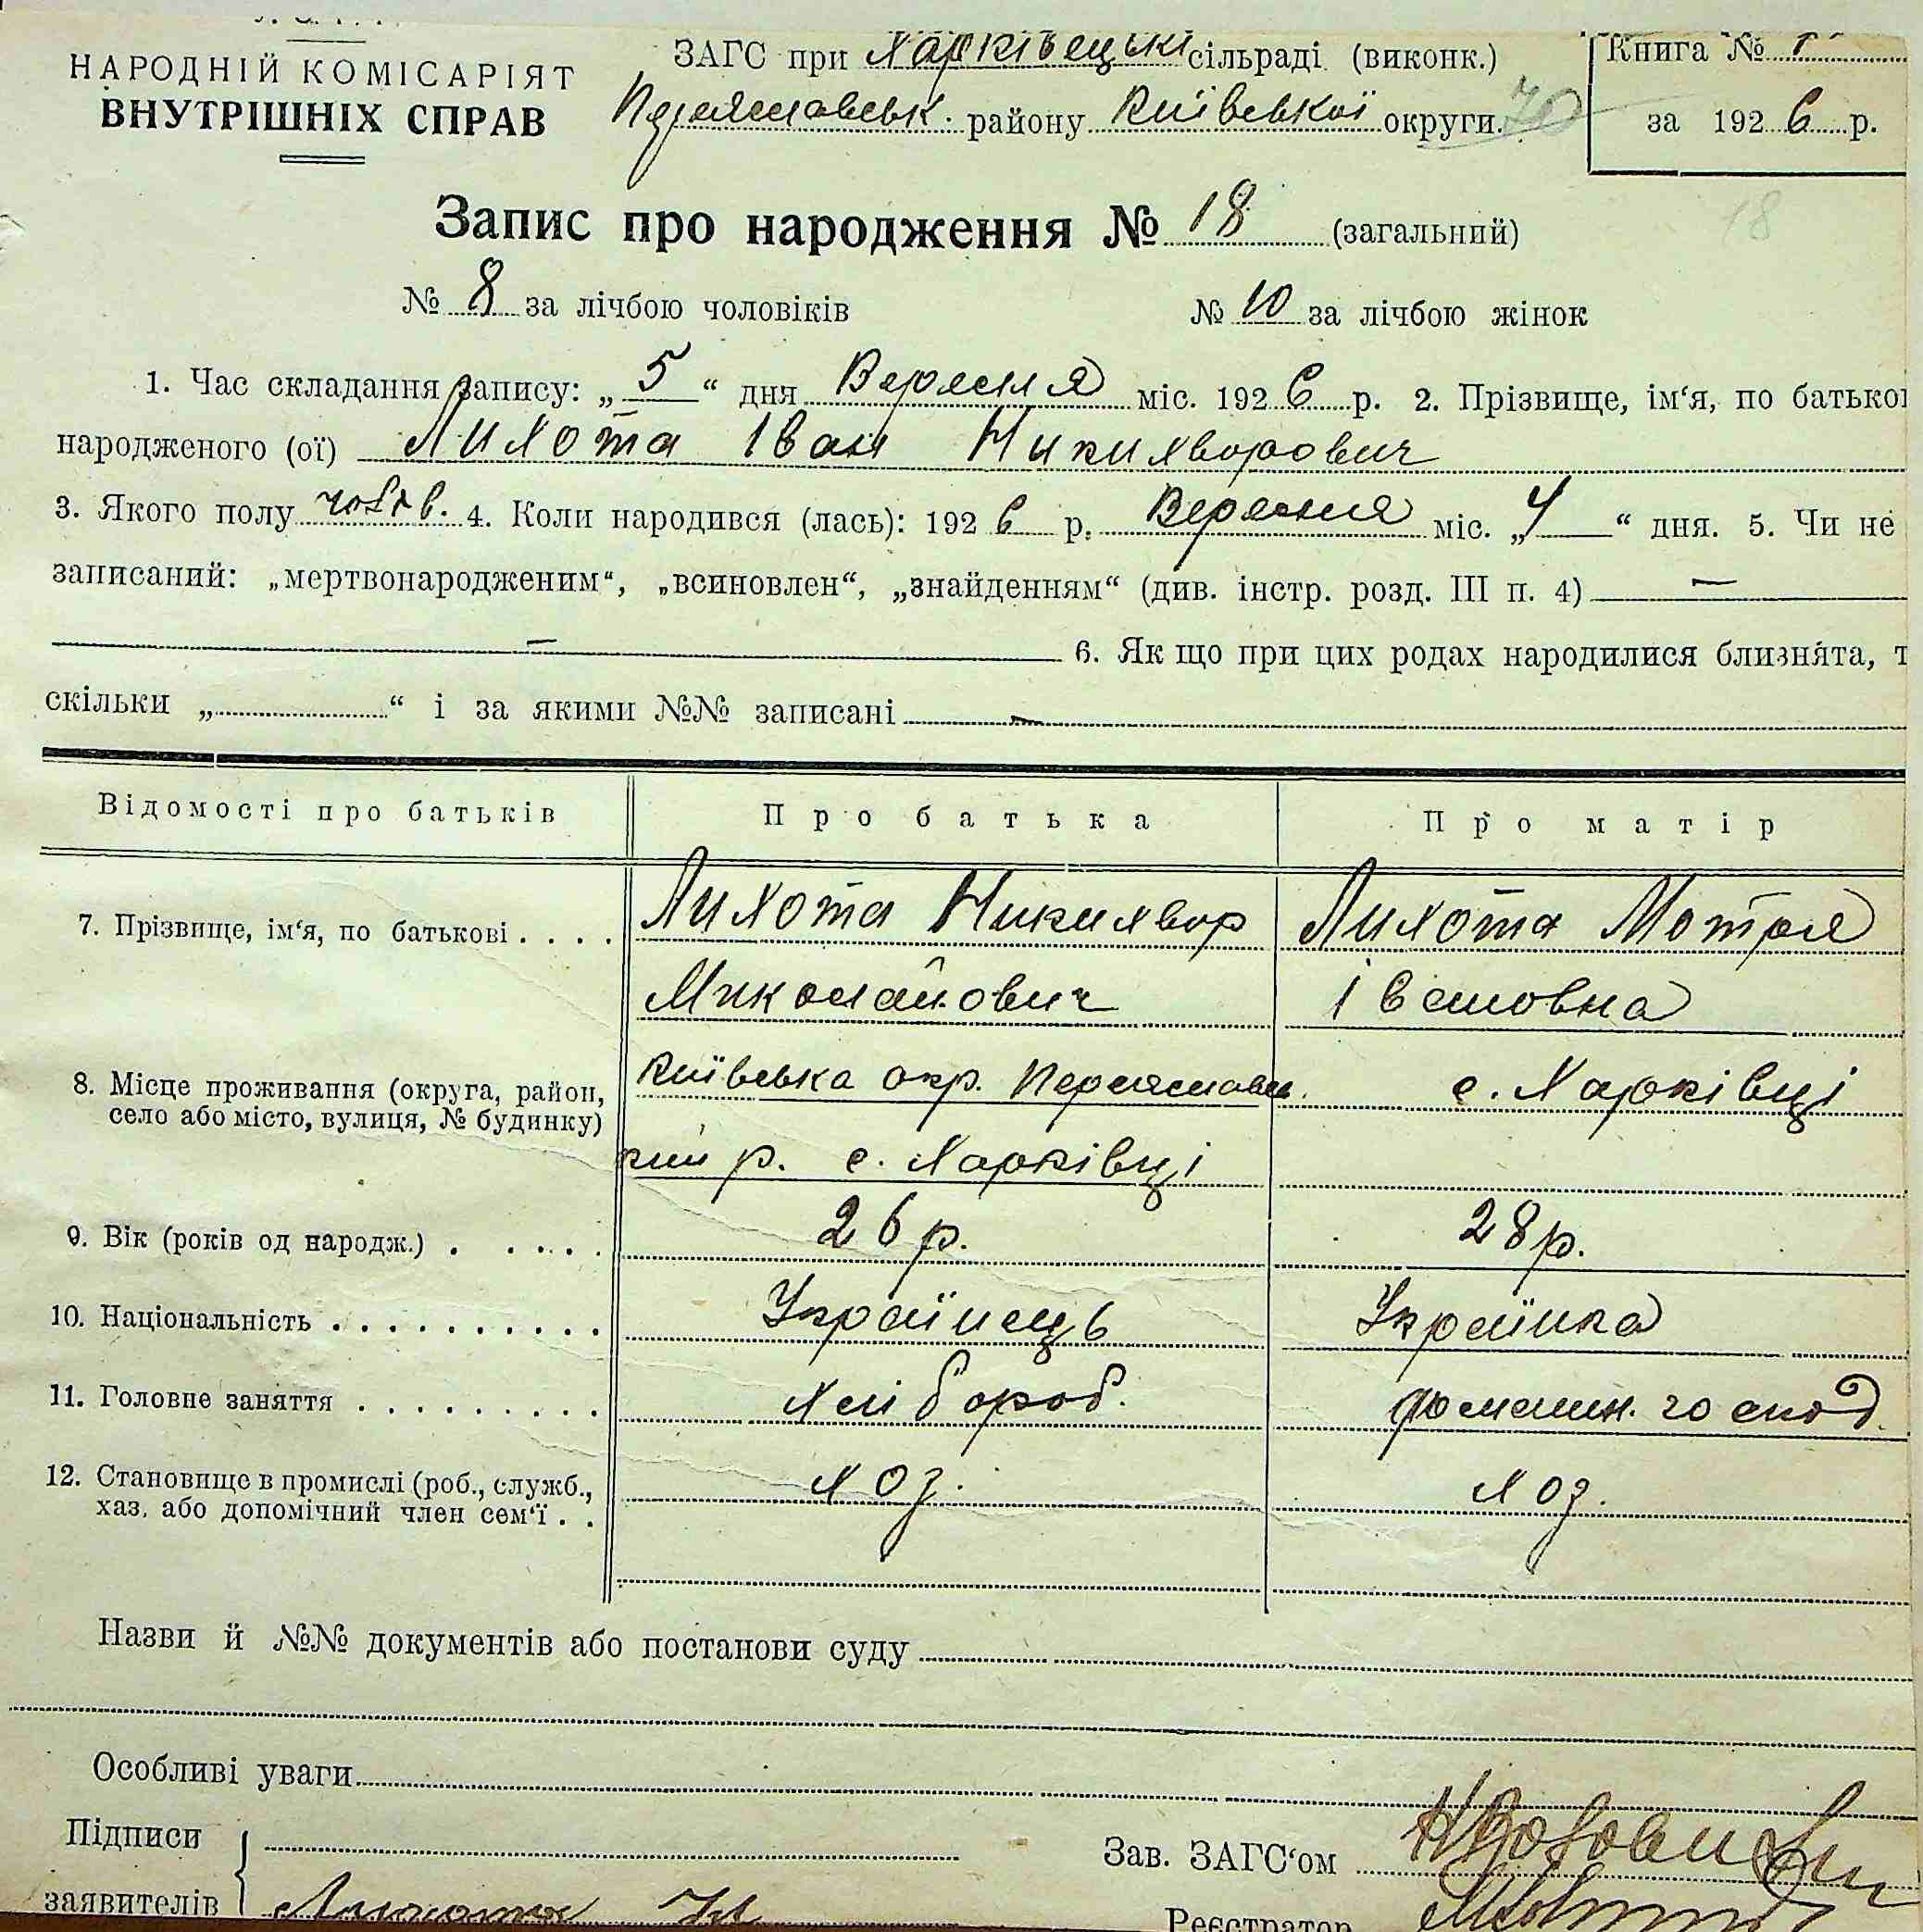 НАРОДНІЙ КОМІСАРІЯТ
ВНУТРІШНІХ СПРАВ
ЗАГС при Харківецькі сільраді (виконк.)
Переяславськ. району Київської округи. 70
Книга №
за 1926 р.
Запис про народження № 18 (загальний)
18
№ 8 за лічбою чоловіків № 10 за лічбою жінок
1. Час складання запису: „5“ дня Вересня міс. 1926 р. 2. Прізвище, ім‘я, по батької
народженого (ої) Лихота Іван Никихворович
3. Якого полу чолов. 4. Коли народився (лась): 1926 р. Вересня міс. „4“ дня. 5. Чи не
записаний: „мертвонародженим“, „всиновлен“, „знайденням“ (див. інстр. розд. III п. 4) —
— 6. Як що при цих родах народилися близнята, т
скільки „ “ і за якими №№ записані —
Відомості про батьків Про батька Про матір
7. Прізвище, ім‘я, по батькові . . . . Лихота Никихвор Лихота Мотря
Миколайович Івановна
8. Місце проживання (округа, район, Київська окр. Переяславсь. с. Харківці
село або місто, вулиця, № будинку)
кий р. с. Харківці
9. Вік (років од народж.) . . . . . 26 р. 28 р.
10. Національність . . . . . . . . . . Українець Українка
11. Головне заняття . . . . . . . . . Хлібороб. домашн. господ.
12. Становище в промислі (роб., служб., хоз. хоз.
хаз. або допомічний член сем‘ї . .
Назви й №№ документів або постанови суду
Особливі уваги
Підписи
Зав. ЗАГС‘ом
заявителів Лихота
Реєстратор